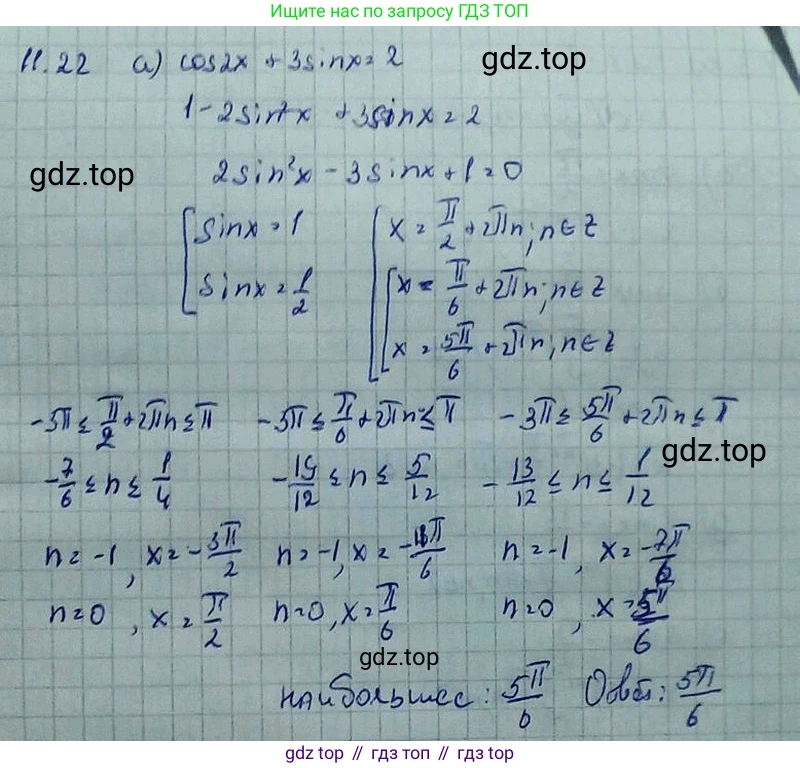 Ищите нас по запросу ГДЗ ТОП
11.22 а) cos2x + 3sinx = 2
gdz.top
1 - 2sin²x + 3sinx = 2
gdz.top
2sin²x - 3sinx + 1 = 0
[ sinx = 1 [ x = π/2 + 2πn; n ∈ Z
sinx = 1/2 [ x = π/6 + 2πn; n ∈ Z
x = 5π/6 + 2πn; n ∈ Z
-3π ≤ π/2 + 2πn ≤ π -3π ≤ π/6 + 2πn ≤ π -3π ≤ 5π/6 + 2πn ≤ π
gdz.top
-7/6 ≤ n ≤ 1/4 -19/12 ≤ n ≤ 5/12 -13/12 ≤ n ≤ 1/12
n = -1, x = -3π/2 n = -1, x = -11π/6 n = -1, x = -7π/6
n = 0, x = π/2 n = 0, x = π/6 n = 0, x = 5π/6
gdz.top
наибольшее: 5π/6 Ответ: 5π/6
gdz top // гдз топ // gdz.top